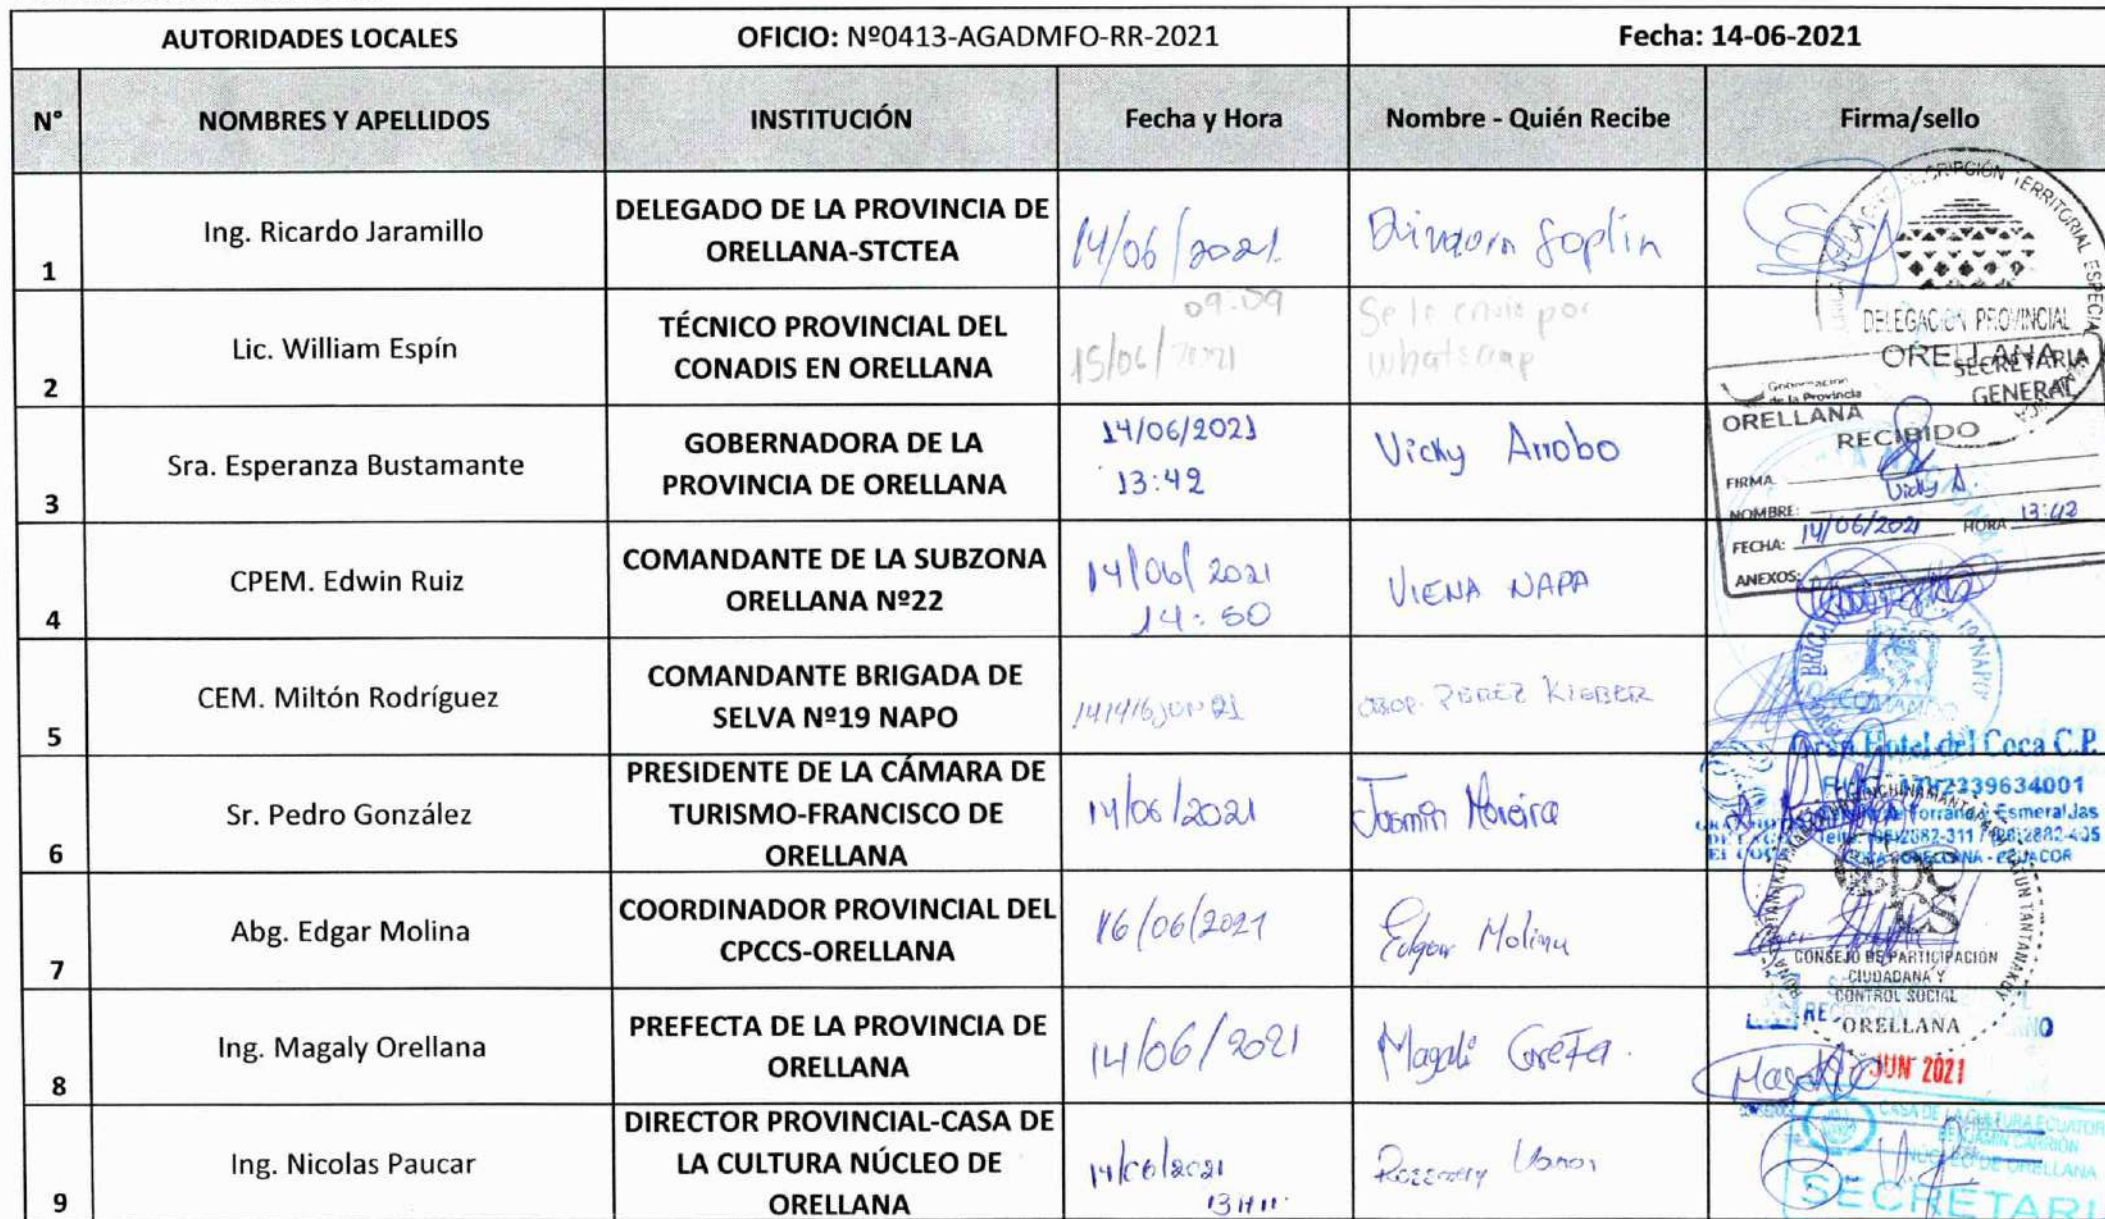 AUTORIDADES LOCALES OFICIO: Nº0413-AGADMFO-RR-2021 Fecha: 14-06-2021
N° NOMBRES Y APELLIDOS INSTITUCIÓN Fecha y Hora Nombre - Quién Recibe Firma/sello
1 Ing. Ricardo Jaramillo DELEGADO DE LA PROVINCIA DE
ORELLANA-STCTEA 14/06/2021
TERRITORIAL ESPECIAL
DELEGACION PROVINCIAL
ORELLANA
2 Lic. William Espín TÉCNICO PROVINCIAL DEL
CONADIS EN ORELLANA 09:09
15/06/2021 Se le envio por
whatsaap
3 Sra. Esperanza Bustamante GOBERNADORA DE LA
PROVINCIA DE ORELLANA 14/06/2021
13:42 Vicky Arrobo
Gobernación
de la Provincia
ORELLANA
SECRETARIA
GENERAL
RECIBIDO
FIRMA
Vicky A.
NOMBRE:
FECHA: 14/06/2021 HORA 13:42
ANEXOS:
4 CPEM. Edwin Ruiz COMANDANTE DE LA SUBZONA
ORELLANA Nº22 14/06/2021
14:50 VIENA NAPA
5 CEM. Miltón Rodríguez COMANDANTE BRIGADA DE
SELVA Nº19 NAPO PEREZ KLEBER
COMANDO
6 Sr. Pedro González PRESIDENTE DE LA CÁMARA DE
TURISMO-FRANCISCO DE
ORELLANA 14/06/2021 Jasmin Moreira
Gran Hotel del Coca C.P.
Esmeraldas
COCA - ORELLANA - ECUADOR
7 Abg. Edgar Molina COORDINADOR PROVINCIAL DEL
CPCCS-ORELLANA 16/06/2021 Edgar Molina
CONSEJO DE PARTICIPACIÓN
CIUDADANA Y
CONTROL SOCIAL
ORELLANA
8 Ing. Magaly Orellana PREFECTA DE LA PROVINCIA DE
ORELLANA 14/06/2021 Magali Grefa.
JUN 2021
9 Ing. Nicolas Paucar DIRECTOR PROVINCIAL-CASA DE
LA CULTURA NÚCLEO DE
ORELLANA 14/06/2021
13H11
CASA DE LA CULTURA ECUATOR
BENJAMIN CARRIÓN
NÚCLEO DE ORELLANA
SECRETARI